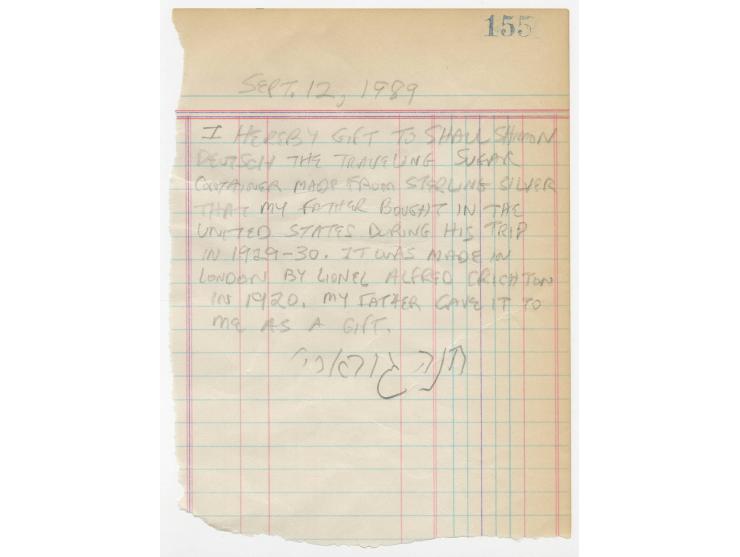 155
SEPT. 12, 1989
I HEREBY GIFT TO SHAUL SHIMON
DEUTSCH THE TRAVELING SUGAR
CONTAINER MADE FROM STERLING SILVER
THAT MY FATHER BOUGHT IN THE
UNITED STATES DURING HIS TRIP
IN 1929-30. IT WAS MADE IN
LONDON BY LIONEL ALFRED CRICHTON
IN 1920. MY FATHER GAVE IT TO
ME AS A GIFT.
חנה גוראריי